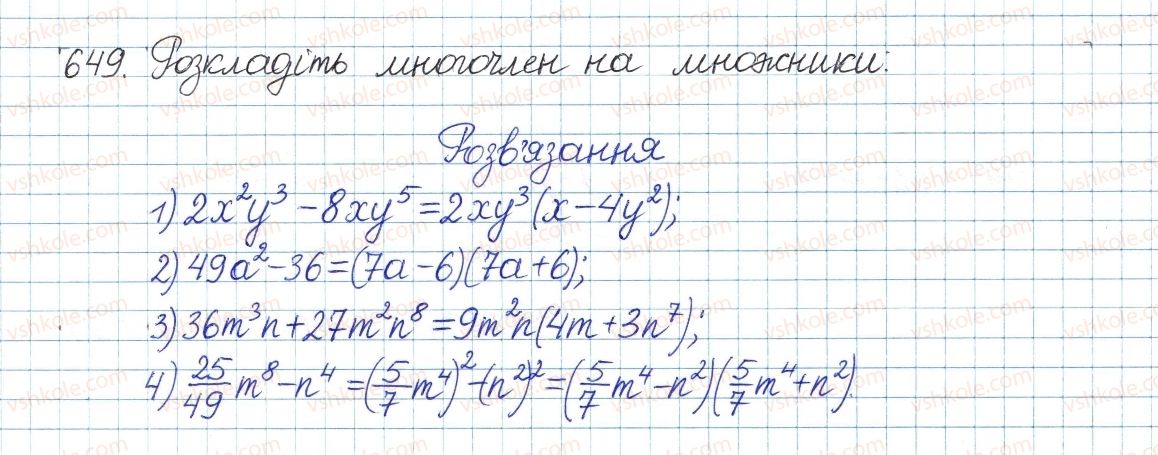 649. Розкладіть многочлен на множники:
Розв'язання
1) 2x²y³ - 8xy⁵ = 2xy³(x - 4y²);
2) 49a² - 36 = (7a - 6)(7a + 6);
3) 36m³n + 27m²n⁸ = 9m²n(4m + 3n⁷);
4) 25/49 m⁸ - n⁴ = (5/7 m⁴)² - (n²)² = (5/7 m⁴ - n²)(5/7 m⁴ + n²).